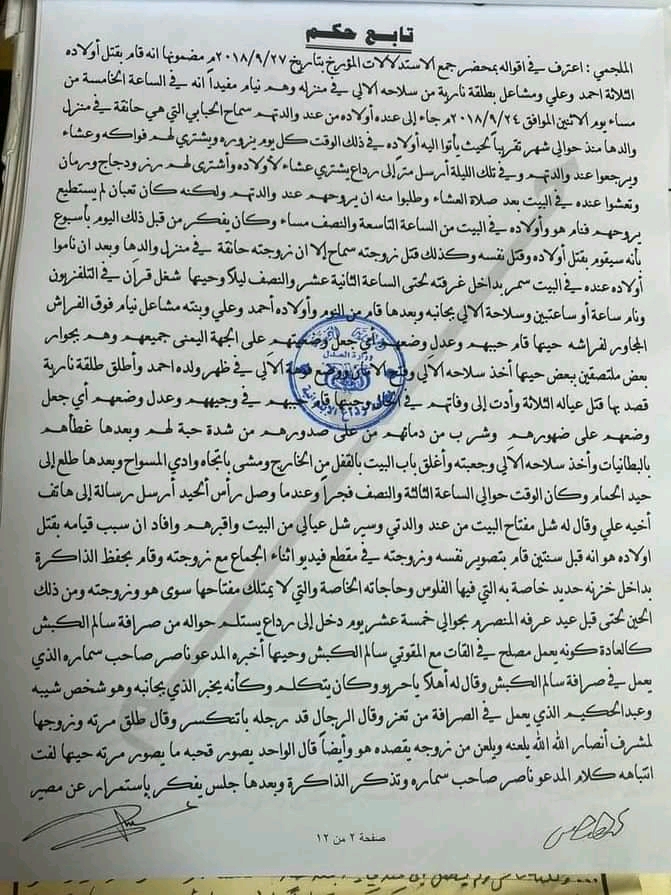 تابع حكم
الملجمي : اعترف في اقواله بمحضر جمع الاستدلالات المؤرخ بتاريخ ٢٠١٨/٩/٢٧م مضمونها انه قام بقتل أولاده
الثلاثة احمد وعلي ومشاعل بطلقة نارية من سلاحه الالي في منزله وهم نيام مفيداً انه في الساعة الخامسة من
مساء يوم الاثنين الموافق ٢٠١٨/٩/٢٤م جاء إلى عنده أولاده من عند والدتهم سماح الحبابي التي هي حانقة في منزل
والدها منذ حوالي شهر تقريباً بحيث يأتوا اليه أولاده في ذلك الوقت كل يوم يزوره ويشتري لهم فواكه وعشاء
ويرجعوا عند والدتهم وفي تلك الليلة أرسل متر إلى رداع يشتري عشاء لأولاده وأشترى لهم رز ودجاج ورمان
وتعشوا عنده في البيت بعد صلاة العشاء وطلبوا منه ان يروحهم عند والدتهم ولكنه كان تعبان لم يستطيع
يروحهم فنام هو وأولاده في البيت من الساعة التاسعة والنصف مساء وكان يفكر من قبل ذلك اليوم بأسبوع
بأنه سيقوم بقتل أولاده وقتل نفسه وكذلك قتل زوجته سماح إلا ان زوجته حانقة في منزل والدها وبعد ان ناموا
أولاده عنده في البيت سمر بداخل غرفته لحتى الساعة الثانية عشر والنصف ليلاً وحينها شغل قرآن في التلفزيون
ونام ساعة أو ساعتين وسلاحه الالي بجانبه وبعدها قام من النوم وأولاده أحمد وعلي وبنته مشاعل نيام فوق الفراش
المجاور لفراشه حينها قام حبهم وعدل وضعهم أي جعل وضعيتهم على الجهة اليمنى جميعهم وهم بجوار
بعض ملتصقين ببعض حينها أخذ سلاحه الآلي وفتح الأمان ووضع فوهة الآلي في ظهر ولده احمد وأطلق طلقة نارية
قصد بها قتل عياله الثلاثة وأدت إلى وفاتهم في الحال وحينها قام حبهم في وجيههم وعدل وضعهم أي جعل
وضعهم على ضهورهم وشرب من دمائهم من على صدورهم من شدة حبة لهم وبعدها غطأهم
بالبطانيات وأخذ سلاحه الآلي وجعبته وأغلق باب البيت بالقفل من الخارج ومشى باتجاه وادي المسواح وبعدها طلع إلى
حيد الحمام وكان الوقت حوالي الساعة الثالثة والنصف فجراً وعندما وصل رأس الحيد أرسل رسالة إلى هاتف
أخيه علي وقال له شل مفتاح البيت من عند والدتي وسير شل عيالي من البيت واقبرهم وافاد ان سبب قيامه بقتل
اولاده هو انه قبل سنتين قام بتصوير نفسه وزوجته في مقطع فيديو اثناء الجماع مع زوجته وقام بحفظ الذاكرة
بداخل خزنه حديد خاصة به التي فيها الفلوس وحاجاته الخاصة والتي لا يمتلك مفتاحها سوى هو وزوجته ومن ذلك
الحين لحتى قبل عيد عرفه المنصرم بحوالي خمسة عشر يوم دخل إلى رداع يستلم حواله من صرافة سالم الكبش
كالعادة كونه يعمل مصلح في القات مع المقوتي سالم الكبش وحينها أخبره المدعو ناصر صاحب سماره الذي
يعمل في صرافة سالم الكبش وقال له أهلاً ياحريو وكان يتكلم وكأنه يخبر الذي بجانبه وهو شخص شيبه
وعبدالحكيم الذي يعمل في الصرافة من تعز وقال الرجال قد رجله باتنكسر وقال طلق مرته وزوجها
لمشرف أنصار الله الله يلعنه ويلعن من زوجه يقصده هو وأيضاً قال الواحد يصور قحبه ما يصور مرته حينها لفت
انتباهه كلام المدعو ناصر صاحب سماره وتذكر الذاكرة وبعدها جلس يفكر باستمرار عن مصير
وزارة العدل
صفحة ٢ من ١٢